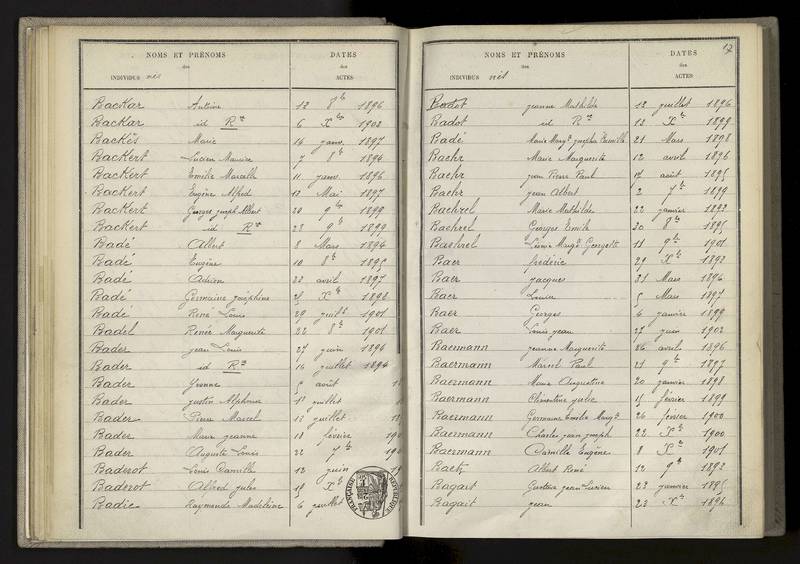 NOMS ET PRÉNOMS
des
INDIVIDUS nés
DATES
des
ACTES
Backar Antoine 12 8bre 1896
Backar id Ron 6 Xbre 1902
Backès Marie 14 janv. 1897
Backert Lucien Maurice 7 8bre 1894
Backert Emilie Marcelle 11 janv. 1896
Backert Eugène Alfred 12 Mai 1897
Backert Georges Joseph Albert 20 9bre 1899
Backert id Ron 28 9bre 1899
Badé Albert 8 Mars 1894
Badé Eugène 10 8bre 1895
Badé Adrien 22 avril 1897
Badé Germaine Joséphine Xbre 1898
Badé René Louis 29 juillt 1901
Badel Renée Marguerite 22 8bre 1901
Bader Jean Louis 27 juin 1894
Bader id Ron 14 juillet 1894
Bader Yvonne 5 août
Bader Justin Alphonse 13 juillet
Bader Pierre Marcel 13 juillet
Bader Marie Jeanne 18 février 190
Bader Auguste Louis 22 7bre 190
Baderot Louis Camille 12 juin
Baderot Alfred Jules 18 Xbre
Badie Raymonde Madeleine 6 juillet
17
NOMS ET PRÉNOMS
des
INDIVIDUS nés
DATES
des
ACTES
Badot Jeanne Mathilde 12 juillet 1896
Badot id Ron 12 Xbre 1899
Badé Marie Margte Josephe 21 Mars 1898
Baehr Marie Marguerite 12 avril 1896
Baehr Jean Pierre Paul 17 août 1895
Baehr Jean Albert 2 7bre 1899
Baehrel Marie Mathilde 22 janvier 1893
Baehrel Georges Emile 20 8bre 1895
Baehrel Margte Georgette 18 9bre 1901
Baer frédéric 29 Xbre 1893
Baer Jacques 31 Mars 1896
Baer Louise 5 Mars 1897
Baer Georges 6 janvier 1899
Baer Louis Jean 27 juin 1902
Baermann Jeanne Marguerite 26 avril 1896
Baermann Marcel Paul 21 9bre 1897
Baermann Marie Augustine 20 janvier 1898
Baermann Clémentine Julie 15 février 1899
Baermann Germaine Emilie Margte 26 février 1900
Baermann Charles Jean Joseph 22 Xbre 1900
Baermann Camille Eugène 8 Xbre 1901
Baetz Albert René 12 9bre 1893
Bagart Gustave Jean Lucien 23 janvier 1895
Bagait Jean 23 Xbre 1896